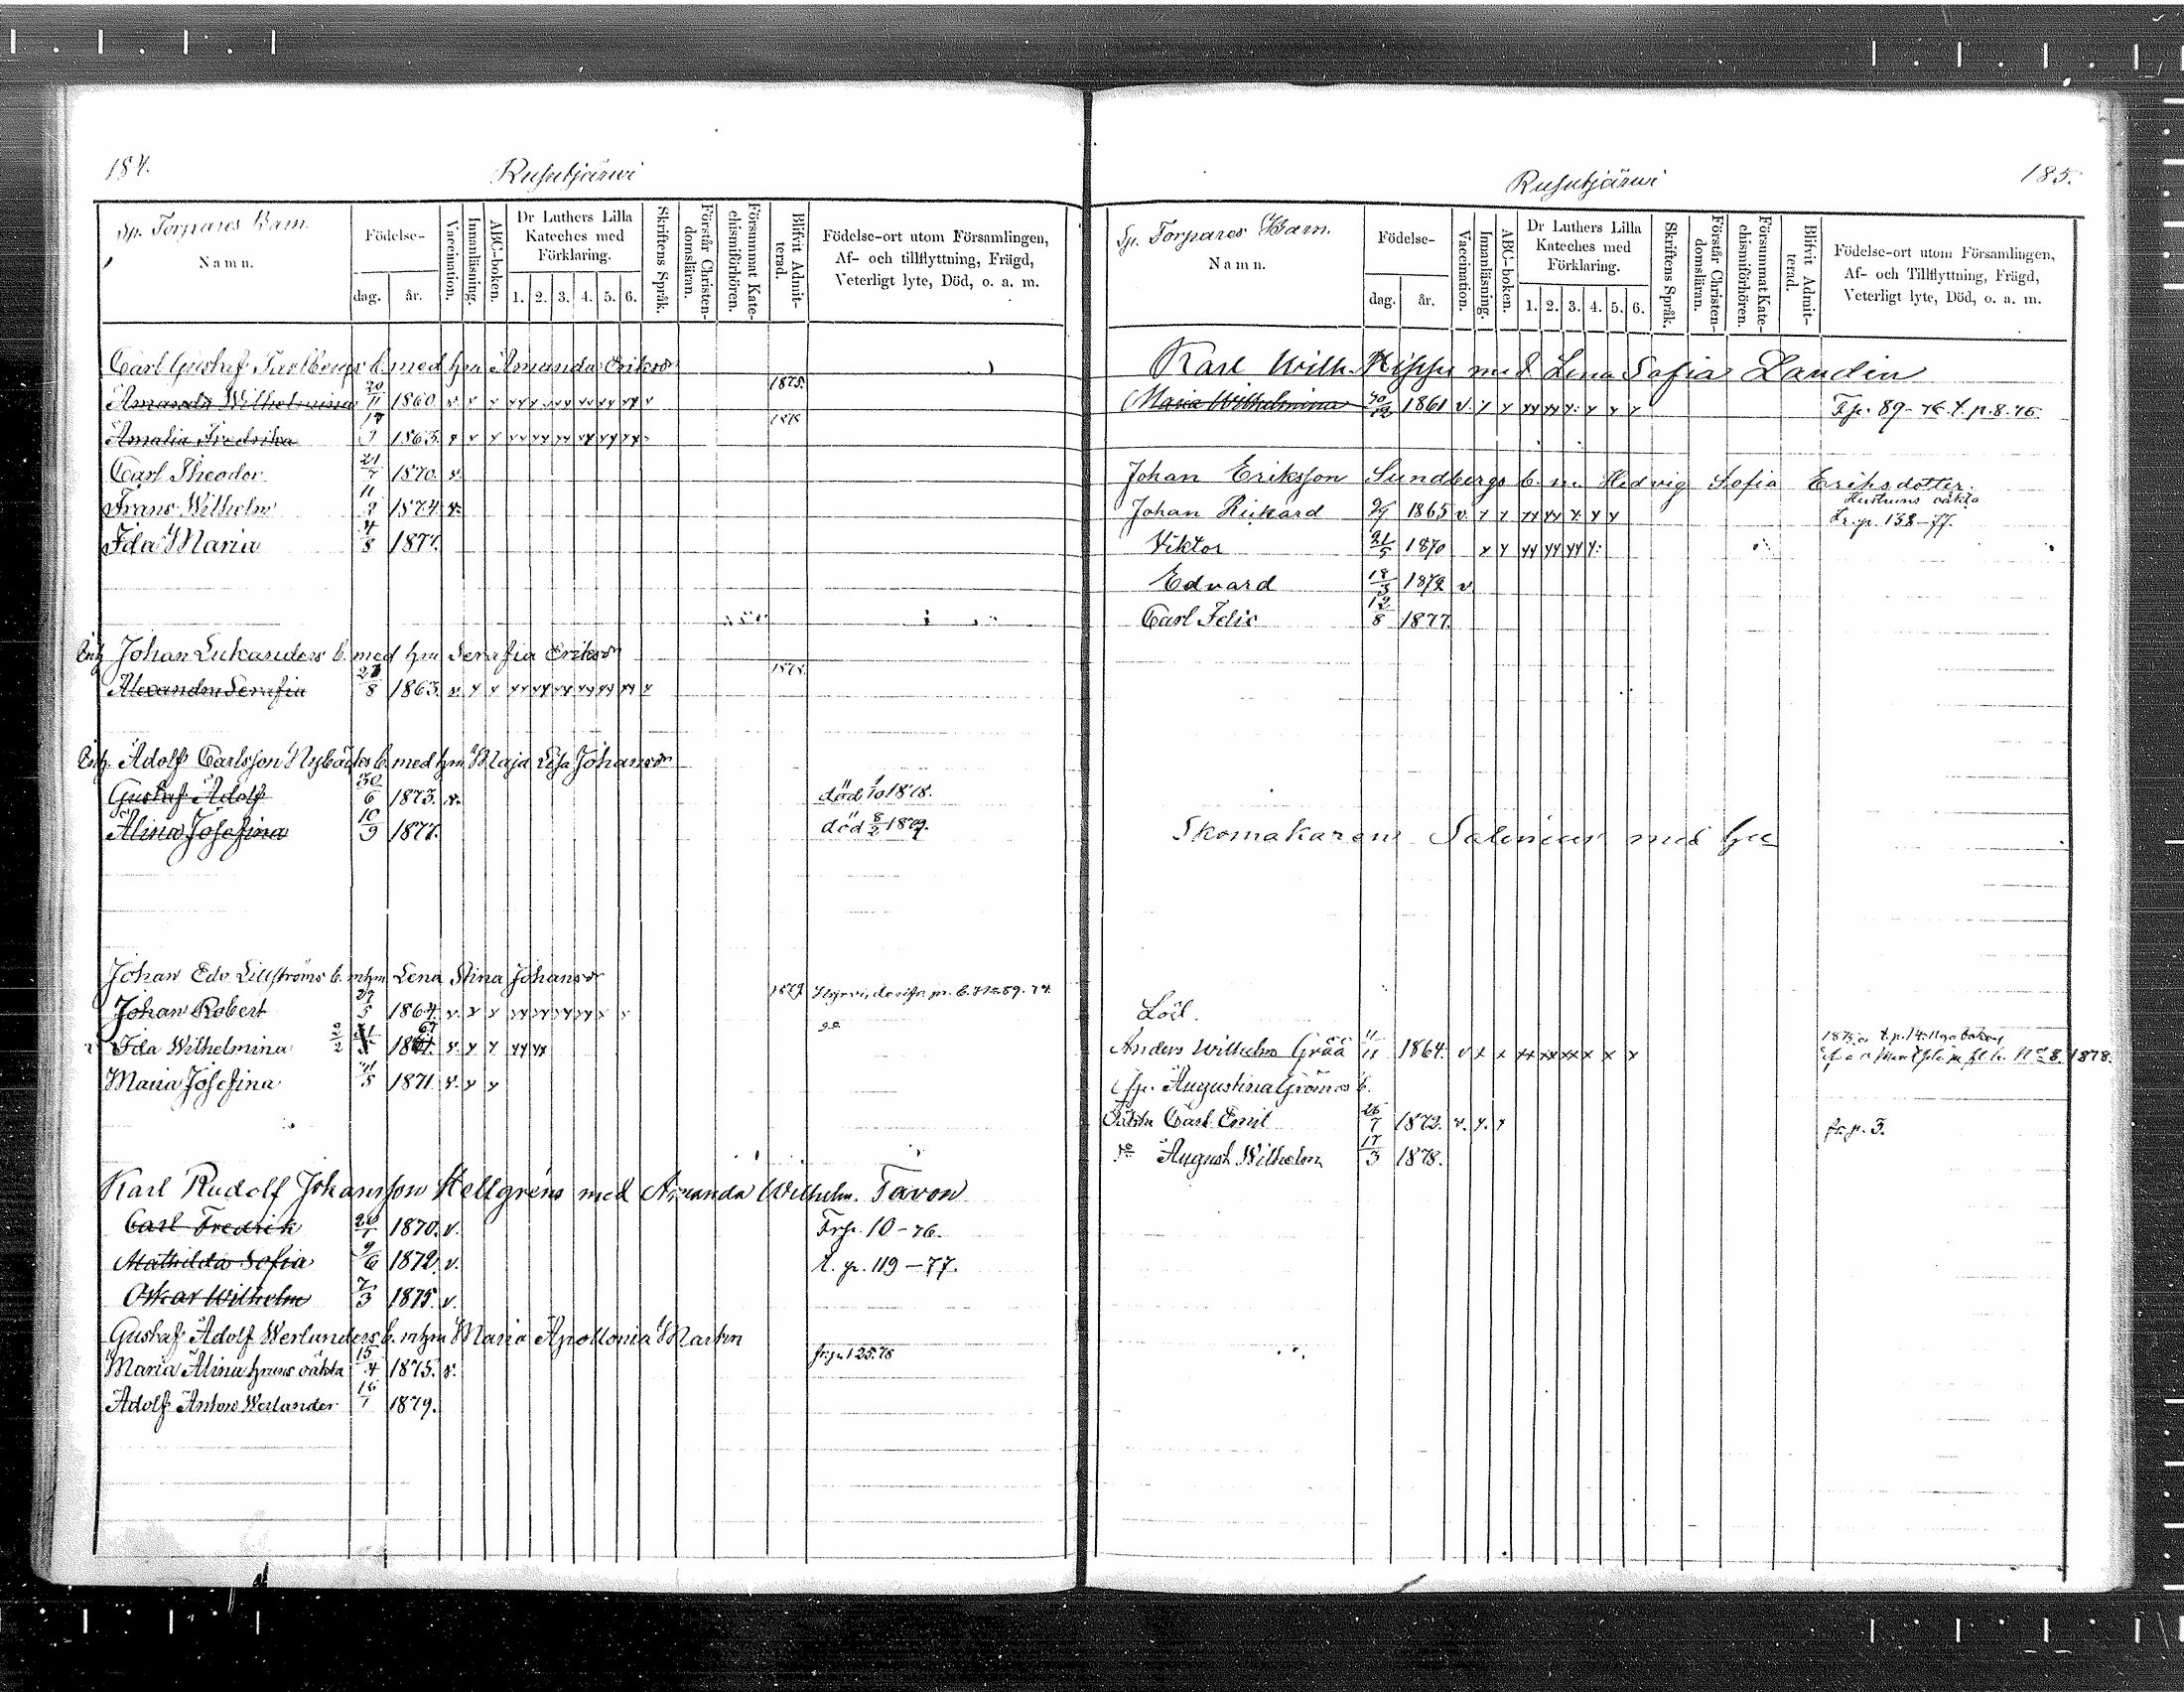 184.
Rusutjärwi
Sp. Torpares Barn.
Namn.
Födelse-
dag.
år.
Vaccination.
Innanläsning.
ABC-boken.
Dr Luthers Lilla
Kateches med
Förklaring.
1. 2. 3. 4. 5. 6.
Skriftens Språk.
Förstår Christen-
domsläran.
Försummat Kate-
chismiförhören.
Blifvit Admit-
terad.
Födelse-ort utom Församlingen,
Af- och tillflyttning, Frägd,
Veterligt lyte, Död, o. a. m.
Carl Gustaf b. med hru Amanda Eriksdr
Amanda Wilhelmina 20/11 1860. v. 1875.
Amalia Fredrika 1863.
Carl Theodor 21/7 1870. v.
Frans Wilhelm 1874 v.
Ida Maria 4/8 1877.
Johan Lukanders b. med hru Serafia Eriksdr
Alexandra Serafia 1863. v. 1878.
Adolf Carlsson Nybäcks b. med hru Maja Lisa Johansdr
Gustaf Adolf 30/6 1873. v. död 1878.
Alina Josefina 10/9 1877. död 8/2 1879.
Johan Edv. Lillströms b. m hru Lena Stina Johansdr
Johan Robert 1864. v. 1879
Ida Wilhelmina 2/2 v.
Maria Josefina 1871. v.
Karl Rudolf Johansson Hellgrens med Amanda Wilhelm. Tavon
Carl Fredrik 1870. v. Fr p. 10-76.
Mathilda Sofia 9/6 1872. v. t. p. 119-77.
Oskar Wilhelm 7/3 1875. v.
Gustaf Adolf Werlanders b. m hru Maria Apollonia Martin
Maria Alina hruns oäkta 15/4 1875. v. fr. p. 125.78
Adolf Anton Werlander 16/1 1879.
Rusutjärwi
185.
Sp. Torpares Barn.
Namn.
Födelse-
dag.
år.
Vaccination.
Innanläsning.
ABC-boken.
Dr Luthers Lilla
Kateches med
Förklaring.
1. 2. 3. 4. 5. 6.
Skriftens Språk.
Förstår Christen-
domsläran.
Försummat Kate-
chismiförhören.
Blifvit Admit-
terad.
Födelse-ort utom Församlingen,
Af- och Tillflyttning, Frägd,
Veterligt lyte, Död, o. a. m.
Karl Wilh. med Lena Sofia Landin
Maria Wilhelmina 1861 v. Fr p. 89-76. t. p. 8-76.
Johan Eriksson Sundbergs b. m. Hedvig Sofia Eriksdotter.
Hustruns oäkta
Johan Rickard 1865 v. Fr. p. 138-77.
Viktor 21/5 1870
Edvard 18/3 1872 v.
Carl Felix 12/8 1877.
Skomakaren Salenius med hu
Lösl.
Anders Wilhelm Grää 11/11 1864. v 1878.
Augustina Grönroos b.
Oäkta Carl Emil 26/7 1872. v. fr. p. 3.
do August Wilhelm 17/3 1878.